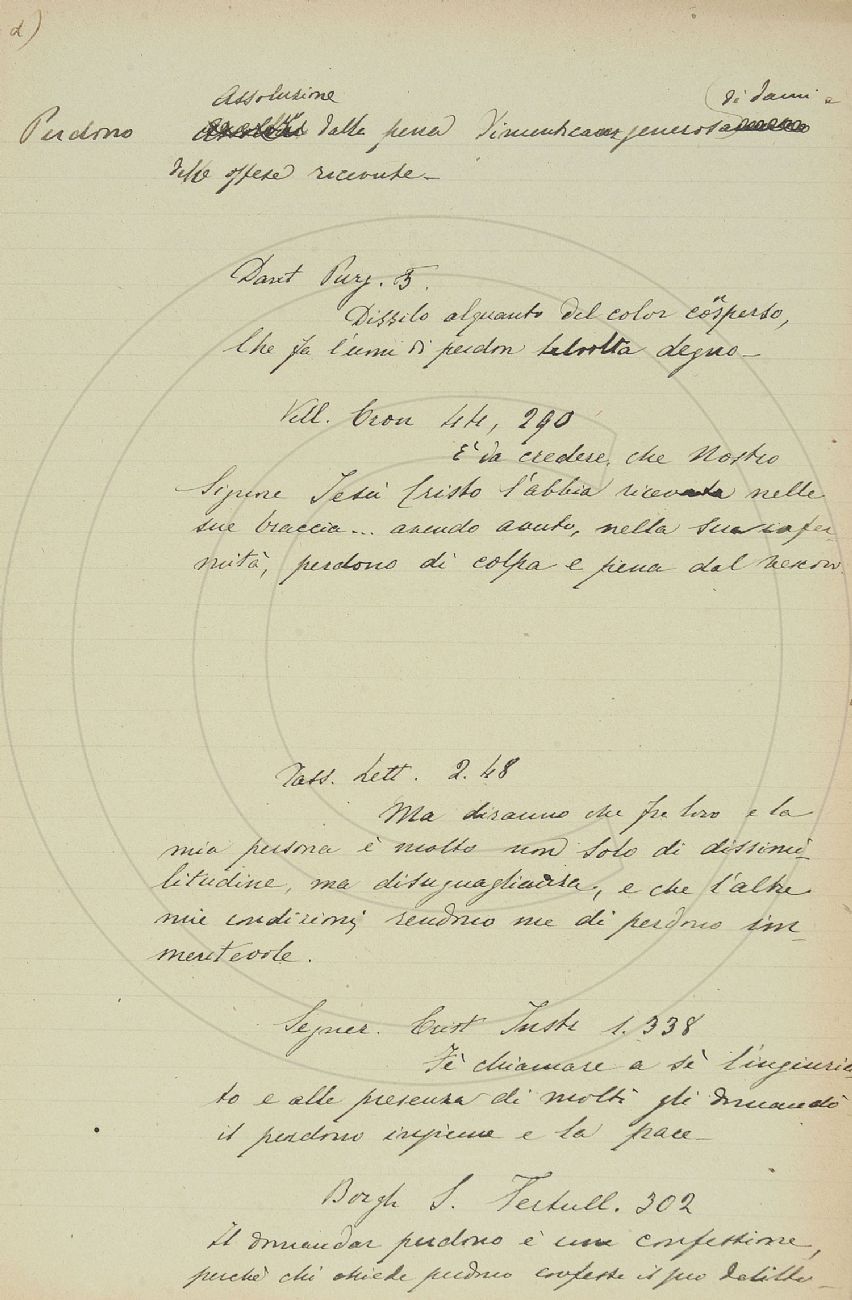 d)
Assoluzione di danni -
Perdono dalla pena Dimenticanza generosa
delle offese ricevute -
Dant Purg. 5.
Dissilo alquanto del color cosperso,
Che fa l'uom di perdon talvolta degno -
Vill. Cron 44, 290
È da credere, che Nostro
Signore Jesù Cristo l'abbia ricevuta nelle
sue braccia... avendo avuto, nella sua infer-
mità, perdono di colpa e pena dal vescov.
Tass. Lett. 2. 48
Ma diranno che fra loro e la
mia persona è molto non solo di dissimi-
litudine, ma disuguaglianza, e che l'altre
mie condizioni rendono me di perdono im-
meritevole.
Segner. Crist Instr 1. 338
Fè chiamare a sè l'ingiuria-
to e alla presenza di molti gli domandò
il perdono insieme e la pace -
Borgh S. Tertull. 302
Il domandar perdono è una confessione,
perchè chi chiede perdono confessa il suo delitto -